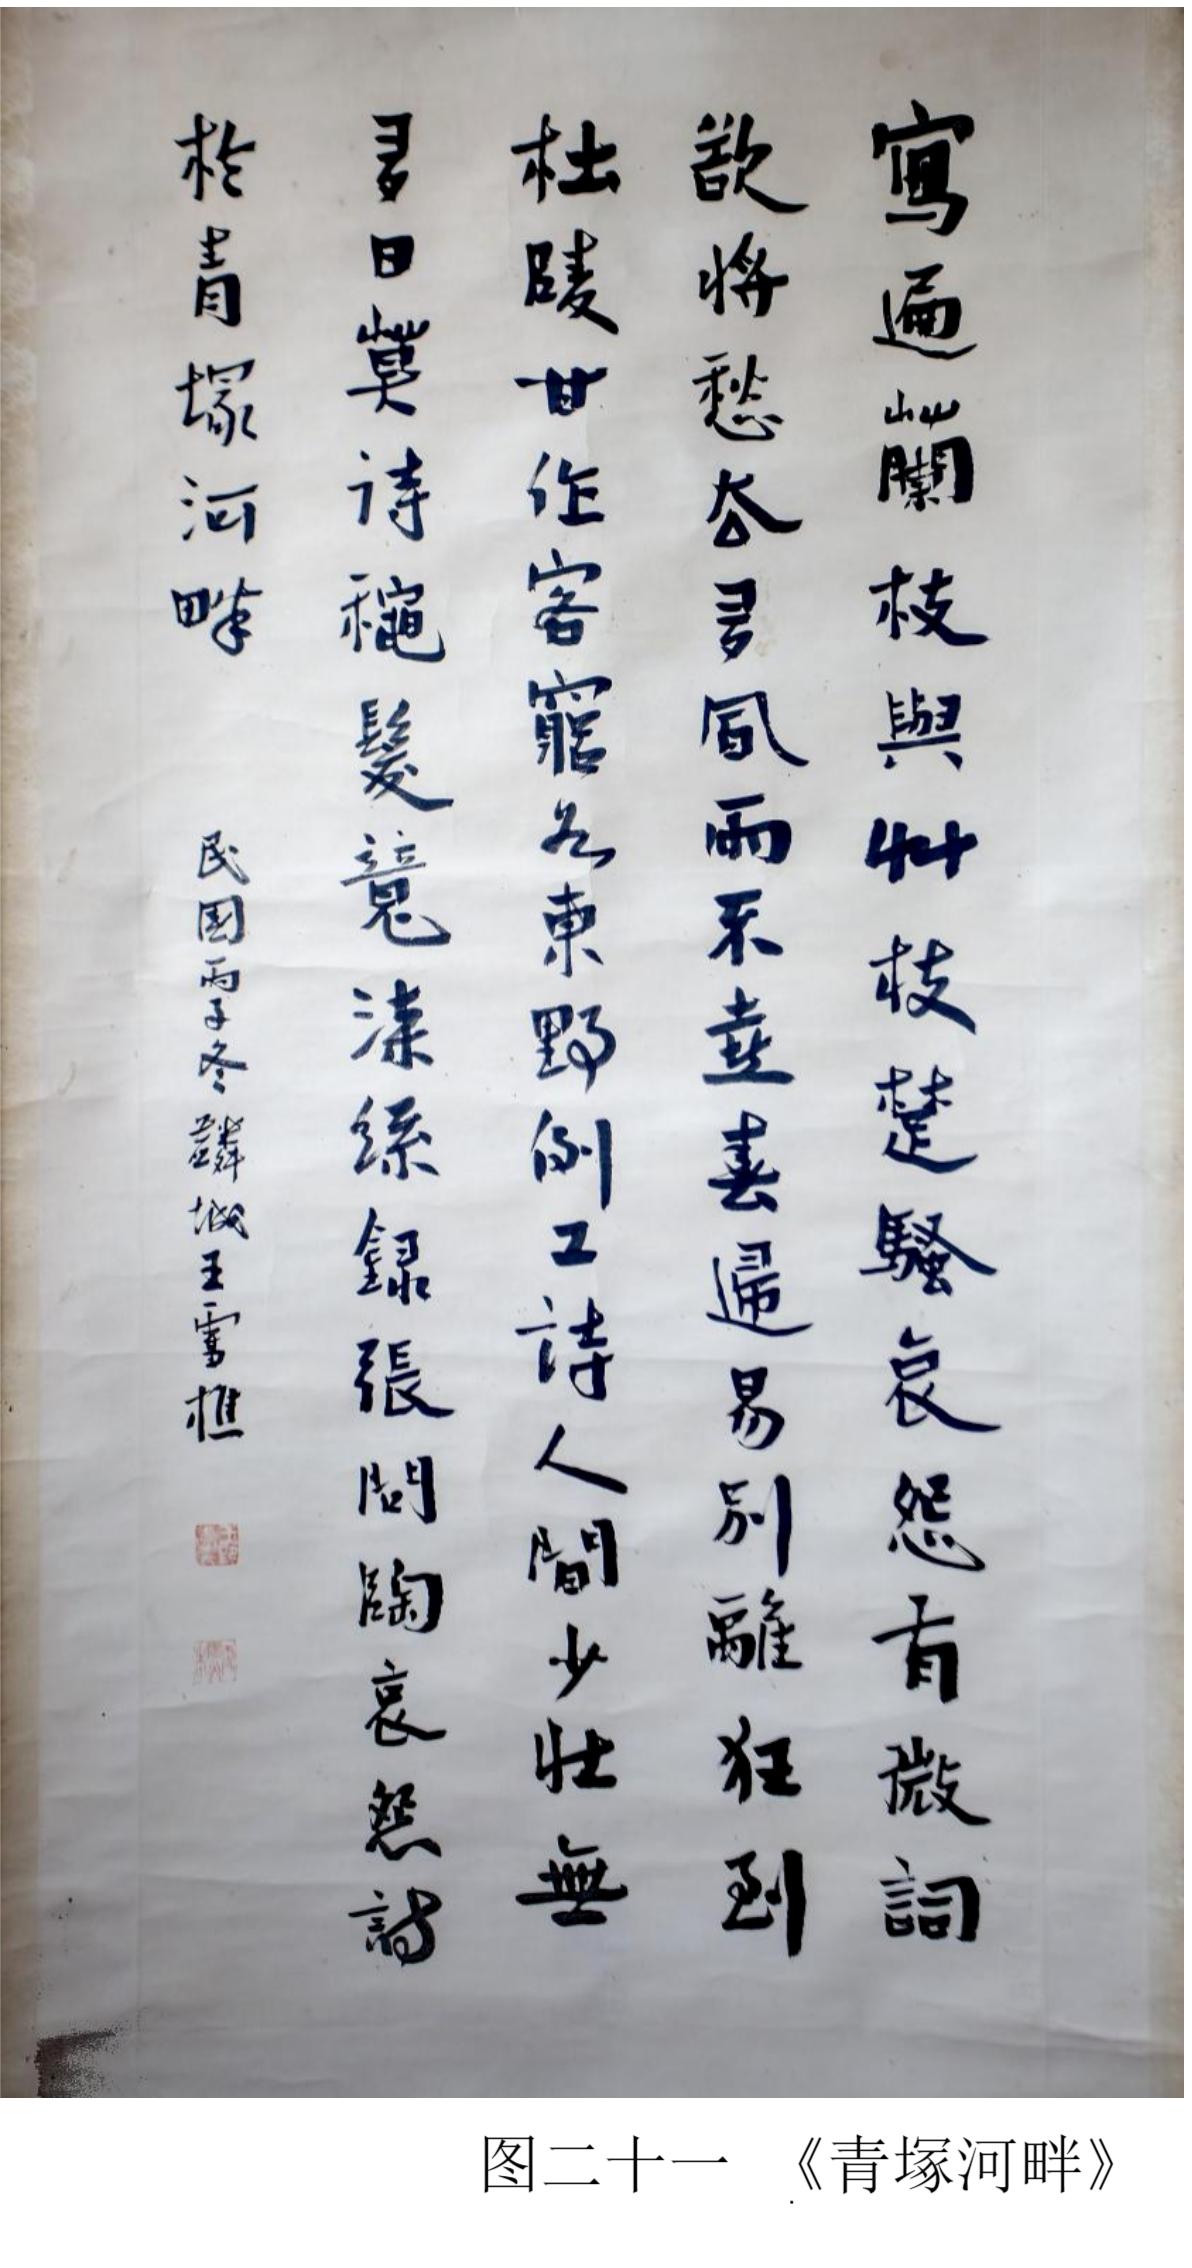 寫遍蘭枝與艸枝楚騷哀怨有微詞
欲將愁谷易風雨不並春歸易別離狂到
杜陵甘作客窮如東野例工詩人間少壯無
多日莫詩穐髮竟漆絲録張問陶哀怨詩
於青塚河畔
民國丙子冬麟城王雪樵
图二十一 《青塚河畔》